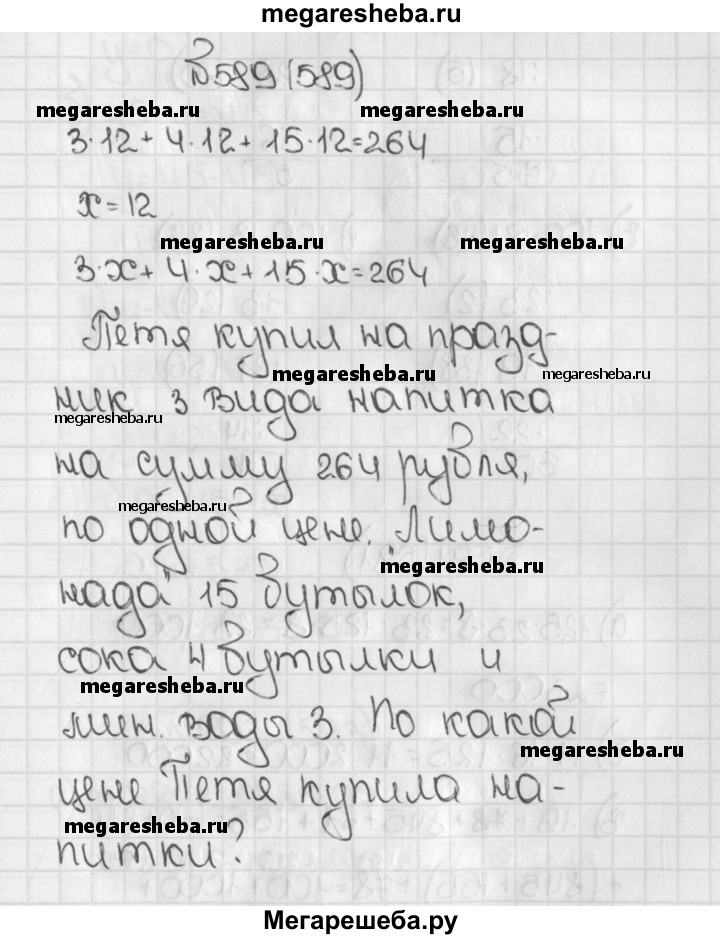 megaresheba.ru
№589 (589)
megaresheba.ru megaresheba.ru
3·12+4·12+15·12=264
x=12
megaresheba.ru megaresheba.ru
3·x+4·x+15·x=264
Петя купил на празд-
megaresheba.ru megaresheba.ru
ник 3 вида напитка
megaresheba.ru
на сумму 264 рубля,
megaresheba.ru
по одной цене. Лимо-
megaresheba.ru
нада 15 бутылок,
сока 4 бутылки и
megaresheba.ru
мин. воды 3. По какой
megaresheba.ru
цене Петя купила на-
megaresheba.ru
питки?
Мегарешеба.ру